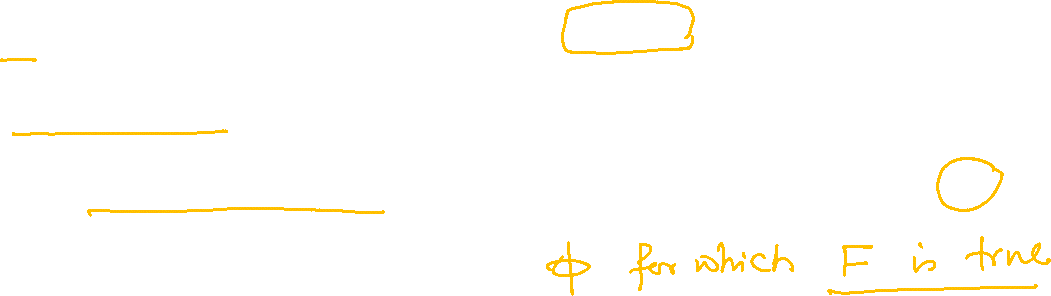 ϕ for which F is true